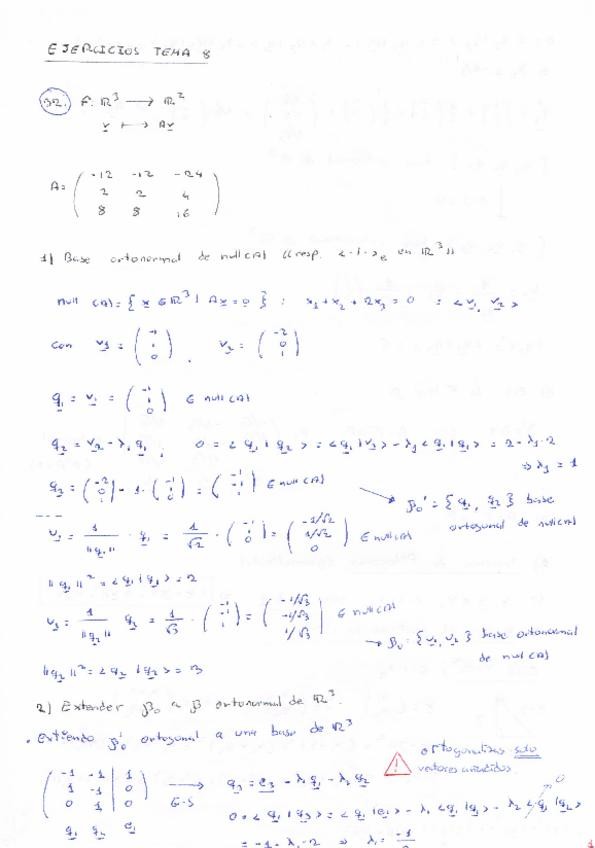 EJERCICIOS TEMA 8
32. F: ℝ³ → ℝ²
v ↦ Av
A = ( -12 -12 -24
2 2 4
8 8 16 )
1) Base ortonormal de null(A) (resp. <·|·>e en ℝ³)
null(A) = { x ∈ ℝ³ | Ax = 0 } : x₁ + x₂ + 2x₃ = 0 = <v₁, v₂>
con v₁ = ( -1 1 0 ), v₂ = ( -2 0 1 )
q₁ = v₁ = ( -1 1 0 ) ∈ null(A)
q₂ = v₂ - λ₁q₁, 0 = <q₁|q₂> = <q₁|v₂> - λ₁<q₁|q₁> = 2 - λ₁·2
⇒ λ₁ = 1
q₂ = ( -2 0 1 ) - 1·( -1 1 0 ) = ( -1 -1 1 ) ∈ null(A)
→ β₀' = { q₁, q₂ } base
ortogonal de null(A)
v₁ = 1/||q₁|| · q₁ = 1/√2 · ( -1 1 0 ) = ( -1/√2 1/√2 0 ) ∈ null(A)
||q₁||² = <q₁|q₁> = 2
v₂ = 1/||q₂|| q₂ = 1/√3 · ( -1 -1 1 ) = ( -1/√3 -1/√3 1/√3 ) ∈ null(A)
→ β₀ = { v₁, v₂ } base ortonormal
de null(A)
||q₂||² = <q₂|q₂> = 3
2) Extender β₀ a β ortonormal de ℝ³.
• Extiendo β₀' ortogonal a una base de ℝ³
ortogonalizas solo
vectores añadidos
( -1 -1 | 1
1 -1 | 0
0 1 | 0 )
q₁ q₂ e₁
→ G-S
q₃ = e₃ - λ₁q₁ - λ₂q₂
0 = <q₁|q₃> = <q₁|e₁> - λ₁<q₁|q₁> - λ₂<q₁|q₂> 0
= -1 - λ₁·2 ⇒ λ₁ = -1
1